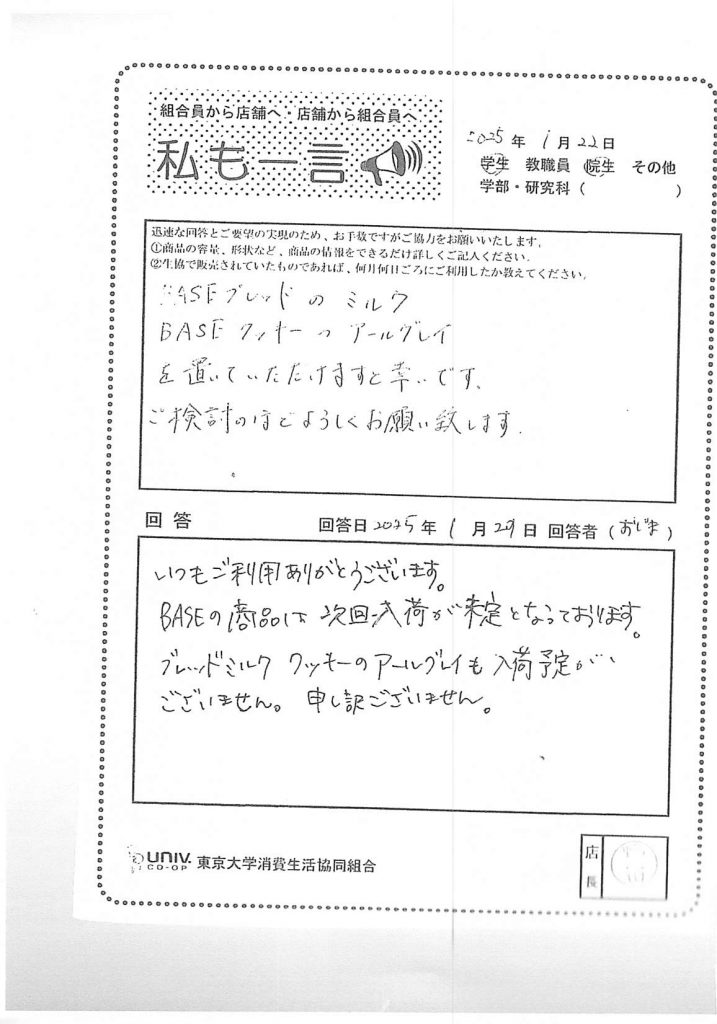 組合員から店舗へ・店舗から組合員へ
私も一言
2025年1月22日
学生 教職員 院生 その他
学部・研究科( )
迅速な回答とご要望の実現のため、お手数ですがご協力をお願いいたします。
①商品の容量、形状など、商品の情報をできるだけ詳しくご記入ください。
②生協で販売されていたものであれば、何月何日ごろにご利用したか教えてください。
BASEブレッドのミルク
BASEクッキーのアールグレイ
を置いていただけますと幸いです。
ご検討のほどよろしくお願い致します.
回答 回答日2025年1月29日 回答者(おじま)
いつもご利用ありがとうございます。
BASEの商品は次回入荷が未定となっております。
ブレッドミルク クッキーのアールグレイも入荷予定が
ございません。申し訳ございません。
UNIV. CO-OP 東京大学消費生活協同組合
店長